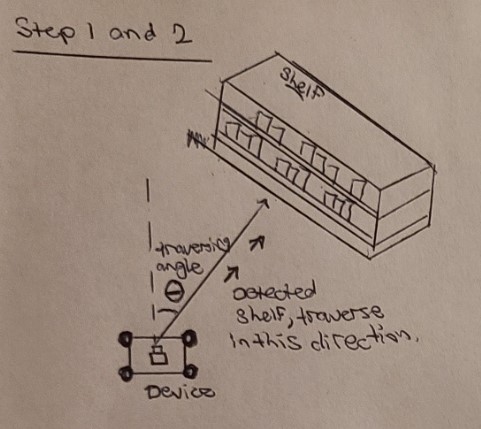 Step 1 and 2
Shelf
traversing
angle
Θ
Detected
shelf, traverse
in this direction.
Device